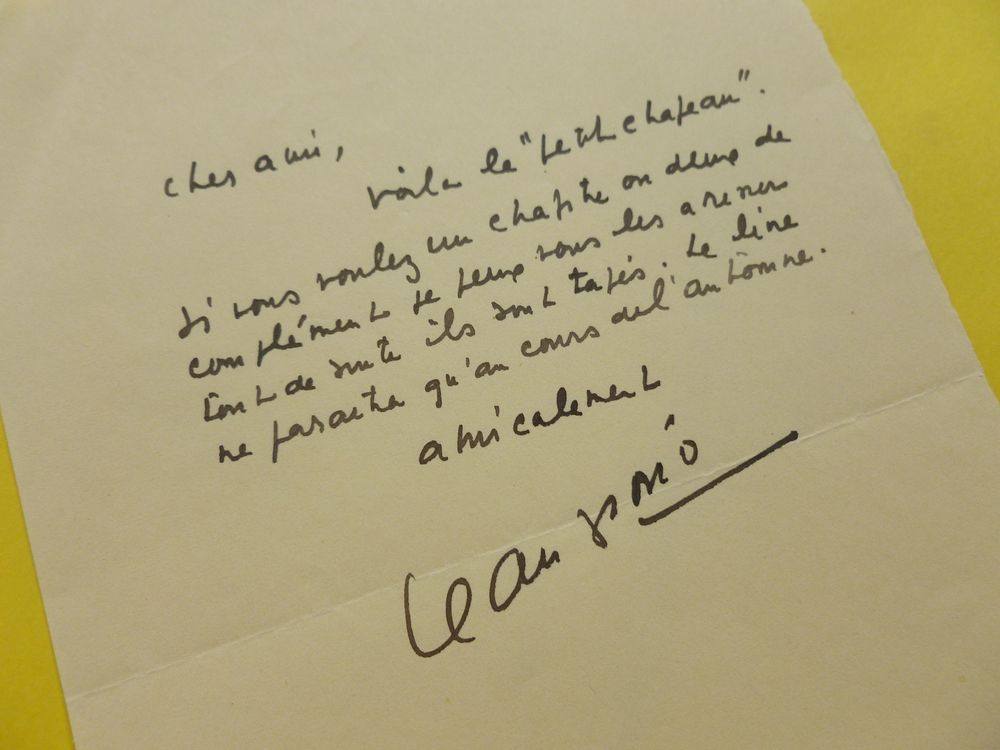 cher ami,
voilà le "petit chapeau".
si vous voulez un chapitre ou deux de
complément je peux vous les
tout de suite ils sont tapés. Le livre
ne paraitra qu'au cours de l'automne.
amicalement
Jean Giono